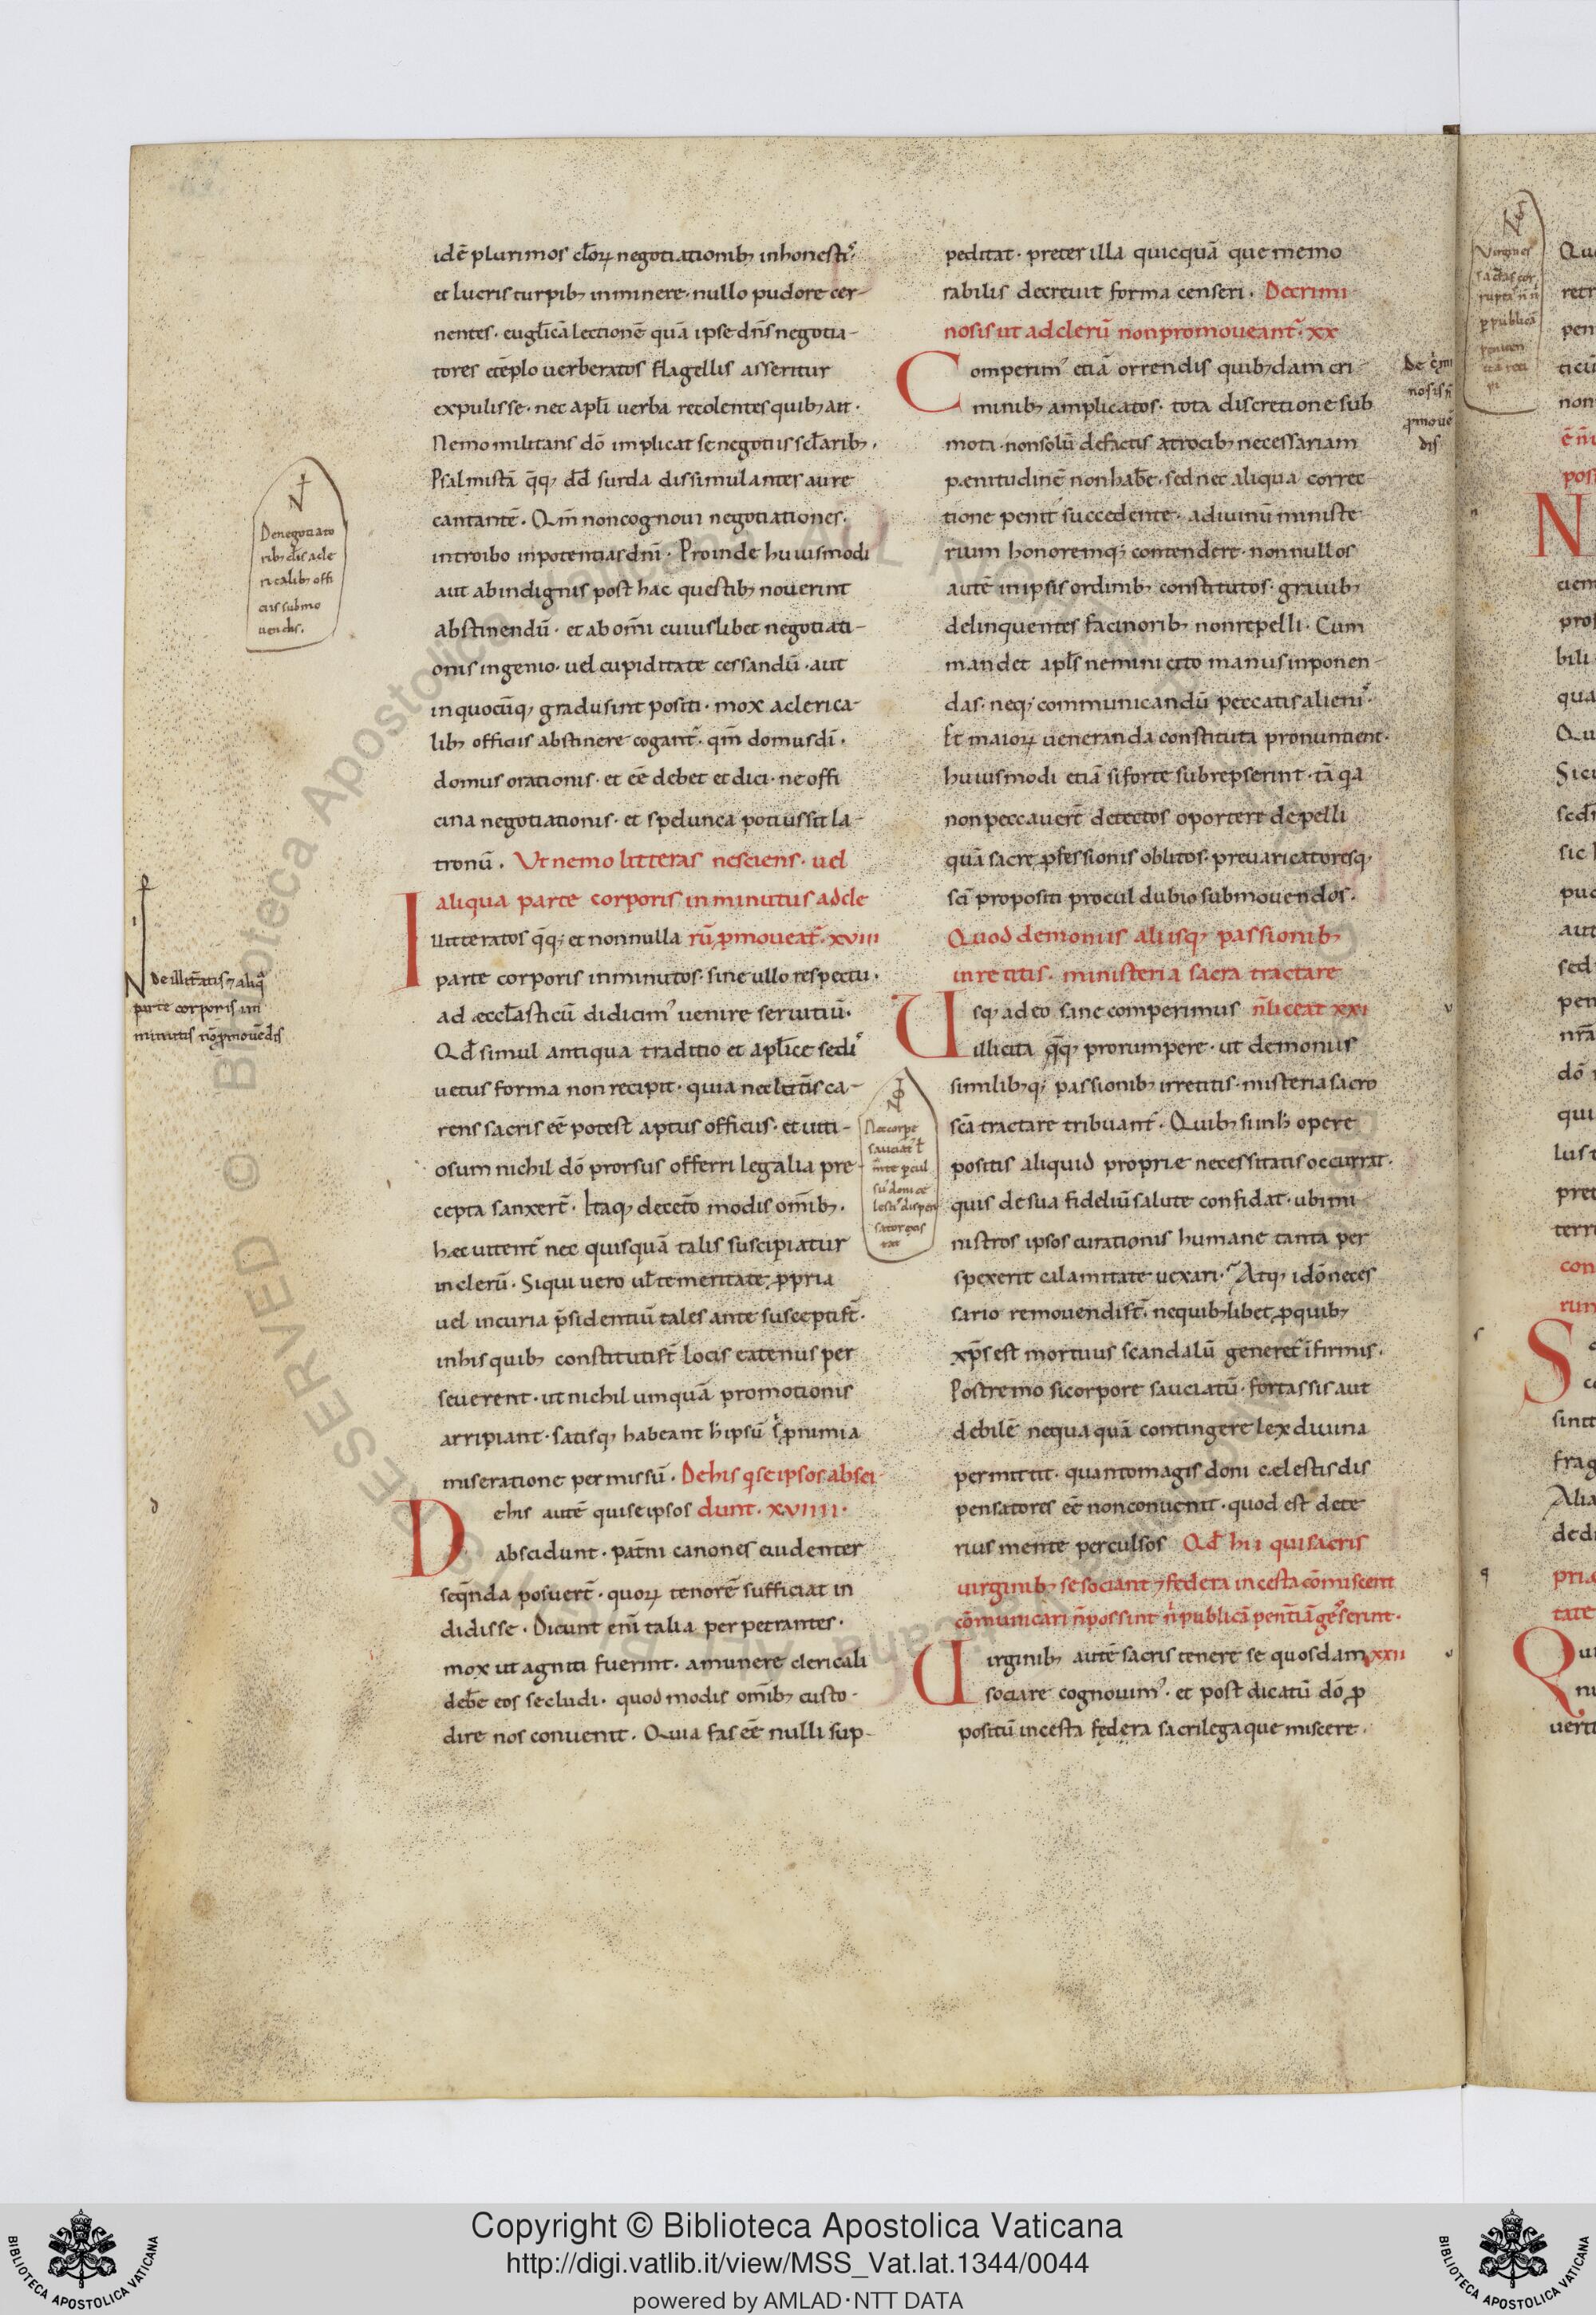 idē plurimos cl̄orꝝ negotiationibꝫ inhonesti᷒·
et lucris turpibꝫ inminere· nullo pudore cer-
nentes· euglicā lectionē quā ipse dn̄s negotia-
tores etēplo uerberatos flagellis asseritur
expulisse· nec apl̄i uerba recolentes quibꝫ ait·
Nemo militans dō implicat se negotiis scl̄aribꝫ·
Psalmistā q̄qꝫ dd̄ surda dissimulantes aure
cantantē· Qm̄ non cognoui negotiationes·
introibo in potentias dn̄i· Proinde huiusmodi
aut ab indignis post hac questibꝫ nouerint
abstinendū· et ab om̄i cuiuslibet negotiati-
onis ingenio· uel cupiditate cessandū· aut
in quocūqꝫ gradu sint positi· mox a clerica-
libꝫ officiis abstinere cogant᷑· qm̄ domus dī·
domus orationis· et eē debet et dici· ne offi
cina negotiationis· et spelunca potius sit la-
tronū· Ut nemo litteras nesciens· uel
aliqua parte corporis inminutus ad cle
Illitteratos q̄qꝫ et nonnulla rū ꝓmoueat᷑· xviii
parte corporis inminutos· sine ullo respectu·
ad æccl̄asticū didicim᷒ uenire seruitiū·
Qd̄ simul antiqua traditio et apl̄ice sedi᷒
uetus forma non recipit· quia nec litt̄is ca-
rens sacris eē potest aptus officiis· et uiti-
osum nichil dō prorsus offerri legalia pre-
cepta sanxert̄· Itaqꝫ decet̄o modis om̄ibꝫ·
hæc uitent᷑ nec quisquā talis suscipiatur
in clerū· Siqui uero ul̄ temeritate ꝓpria
uel incuria p̄sidentiū tales ante suscepti st̄·
in his quibꝫ constituti st̄ locis eatenus per
seuerent· ut nichil umquā promotionis
arripiant· satisqꝫ habeant h̓ ipsū s̓ ꝓ nimia
miseratione permissū· De his q̓ se ipsos absci
De his autē qui se ipsos dunt· xviiii·
abscidunt· pat̄ni canones euidenter
seq̄nda posuert̄· quorꝝ tenorē sufficiat in
didisse· Dicunt enī talia perpetrantes·
mox ut agniti fuerint· a munere clericali
deb̄e eos secludi· quod modis om̄ibꝫ custo-
dire nos conuenit· Quia fas eē nulli sup-
peditat· preter illa quicquā que memo
rabilis decreuit forma censeri· De crimi
nosis ut ad clerū non promoueant᷑· xx
Comperim᷒ etiā orrendis quibꝫdam cri-
minibꝫ amplicatos· tota discretione sub
mota· non solū de factis atrocibꝫ necessariam
pænitudinē non hab̄e· sed nec aliqua correc
tione penit᷒ succedente· ad iuinū ministe
rium honoremqꝫ contendere· nonnullos
autē in ipsis ordinibꝫ constitutos· grauibꝫ
delinquentes facinoribꝫ non repelli· Cum
mandet apl̄s nemini cito manus inponen-
das· neqꝫ communicandū peccatis alieni᷒·
Et maiorꝝ ueneranda constituta pronuntient·
huiusmodi etiā si forte subrepserint· tā q̓a
non peccauert̄ detectos oportere depelli
quā sacre ꝓfessionis oblitos· preuaricatoresqꝫ
sc̄i propositi procul dubio submouendos·
Quod demoniis aliisqꝫ passionibꝫ
inretitis· ministeria sacra tractare
Usqꝫ adeo sane comperimus n̄ liceat xxi
illicita q̄qꝫ prorumpere· ut demoniis
similibꝫqꝫ passionibꝫ irretitis· misteria sacro
sc̄a tractare tribuant᷑· Quibꝫ si in h̓ opere
positis aliquid propriæ necessitatis occurrat·
quis de sua fideliū salute confidat· ubi mi
nistros ipsos curationis humane tanta per
spexerit calamitate uexari· Atqꝫ idō neces
sario remouendi st̄· ne quibꝫlibet ꝓ quibꝫ
xp̄s est mortuus scandalū generet᷑ īfirmis·
Postremo si corpore sauciatū· fortassis aut
debilē nequaquā contingere lex diuina
permittit· quanto magis doni cælestis dis
pensatores eē non conuenit· quod est dete
rius mente perculsos Qd̄ hii qui sacris
uirginibꝫ se sociant ⁊ federa incesta cōmiscent
cōmunicari n̄ possint n̓ publicā penīt̄iā ges̄serint·
Uirginibꝫ autē sacris temere se quosdam xxii
sociare cognouim᷒· et post dicatū dō ꝓ
positū incesta fędera sacrilegaque miscere·
De negotiato
ribꝫ dis a cle
ricalibꝫ offi
ciis submo
uendis.
De illitt̄atis ⁊ aliq̓
parte corporis im
minutis nō ꝓmouēdis
Nec corpe
sauciat᷒ l̄
m̄te ꝑcul
su᷒ doni cę
lesti᷒ dispen
sator exis
tat
De c̓mi
nosis n̄
ꝓmouē
dis
Copyright © Biblioteca Apostolica Vaticana
http://digi.vatlib.it/view/MSS_Vat.lat.1344/0044
powered by AMLAD·NTT DATA
BIBLIOTECA APOSTOLICA VATICANA
BIBLIOTECA APOSTOLICA VATICANA